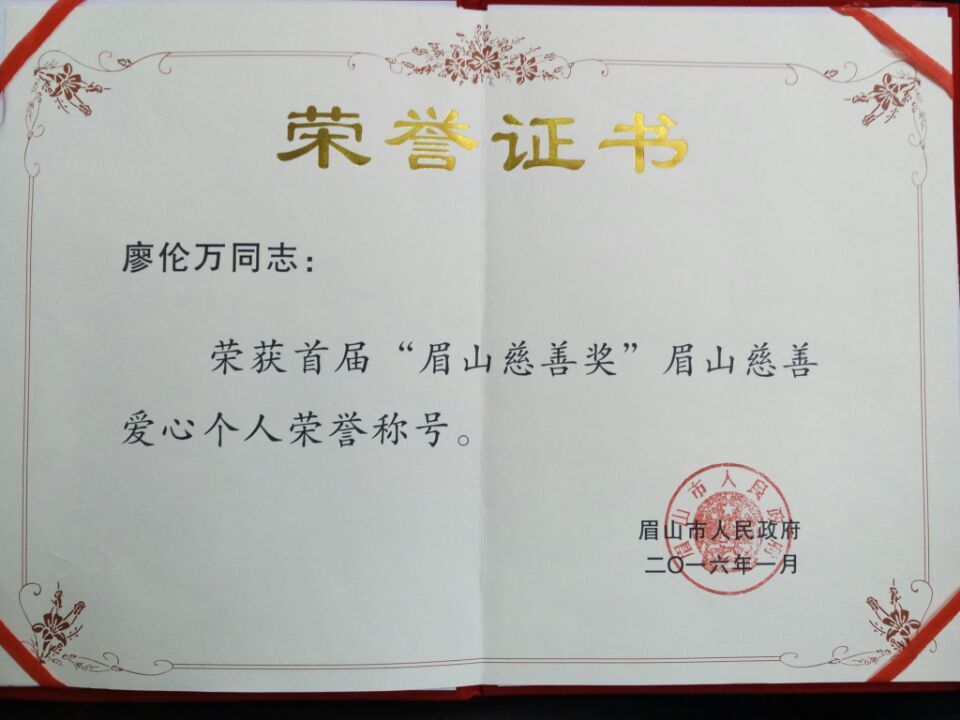 荣誉证书
廖伦万同志：
荣获首届“眉山慈善奖”眉山慈善
爱心个人荣誉称号。
眉山市人民政府
眉山市人民政府
二〇一六年一月